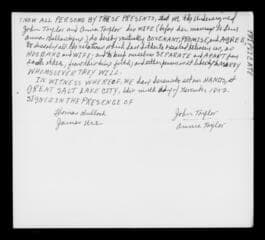 KNOW ALL PERSONS BY THESE PRESENTS, that we the undersigned
John Taylor and Annie Taylor his WIFE (before her marriage to him
Annie Ballantyne) do hereby mutually COVENANT, PROMISE, and AGREE
to dissolve all the relations which have hitherto existed between us, as
HUSBAND and WIFE; and to keep ourselves SEPARATE and APART, from
each other, from this time forth; and
WHOMSOEVER THEY WILL.
IN WITNESS WHEREOF, we have hereunto set our HANDS, at
GREAT SALT LAKE CITY, this ninth day of November 1852.
SIGNED IN THE PRESENCE OF
Thomas Bullock John Taylor
James Annie Taylor